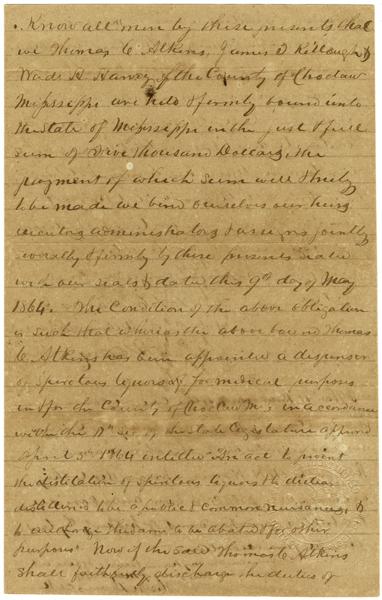 Know all men by these presents that
we Thomas C Atkins, James D Killough &
Wade H Harvey of the County of Choctaw
Mississippi are held & firmly bound unto
the State of Mississippi in the just & full
sum of Five thousand Dollars, the
payment of which sum well & truly
to be made we bind ourselves our heirs
executors administrators & assigns jointly
severally & firmly by these presents sealed
with our seals & dated this 9th day of May
1864. The Condition of the above obligation
is such that whereas the above bound Thomas
C. Atkins has been appointed a dispenser
of spirutous liquors for medical purposes
in & for the County of Choctaw Ms in accordance
with the sec of the State Legislature approved
April 5th 1864 entitled an act to prevent
the distilation of spiritous liquors & to declare
distilleries to be a public & common nuisance, &
to authorize the same to be abated & for other
purposes Now if the said Thomas C Atkins
shall faithfully discharge the duties of